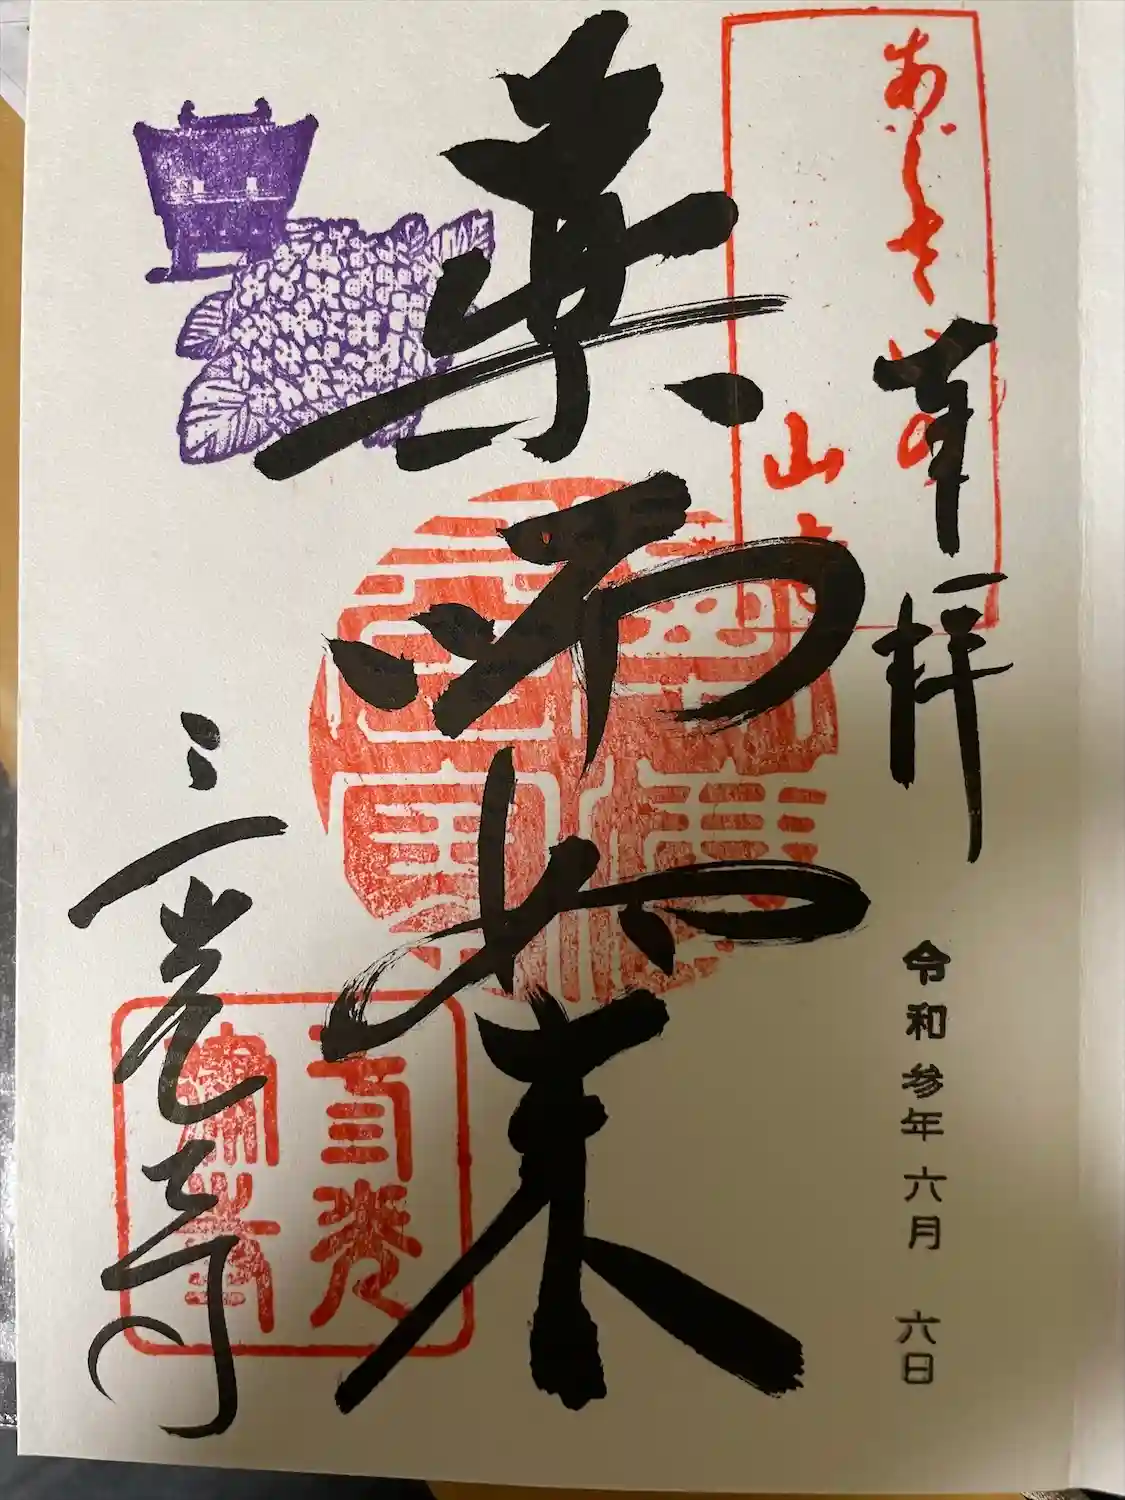 あじさいの
山寺
奉拝
令和参年六月 六日
薬師如来
三光寺